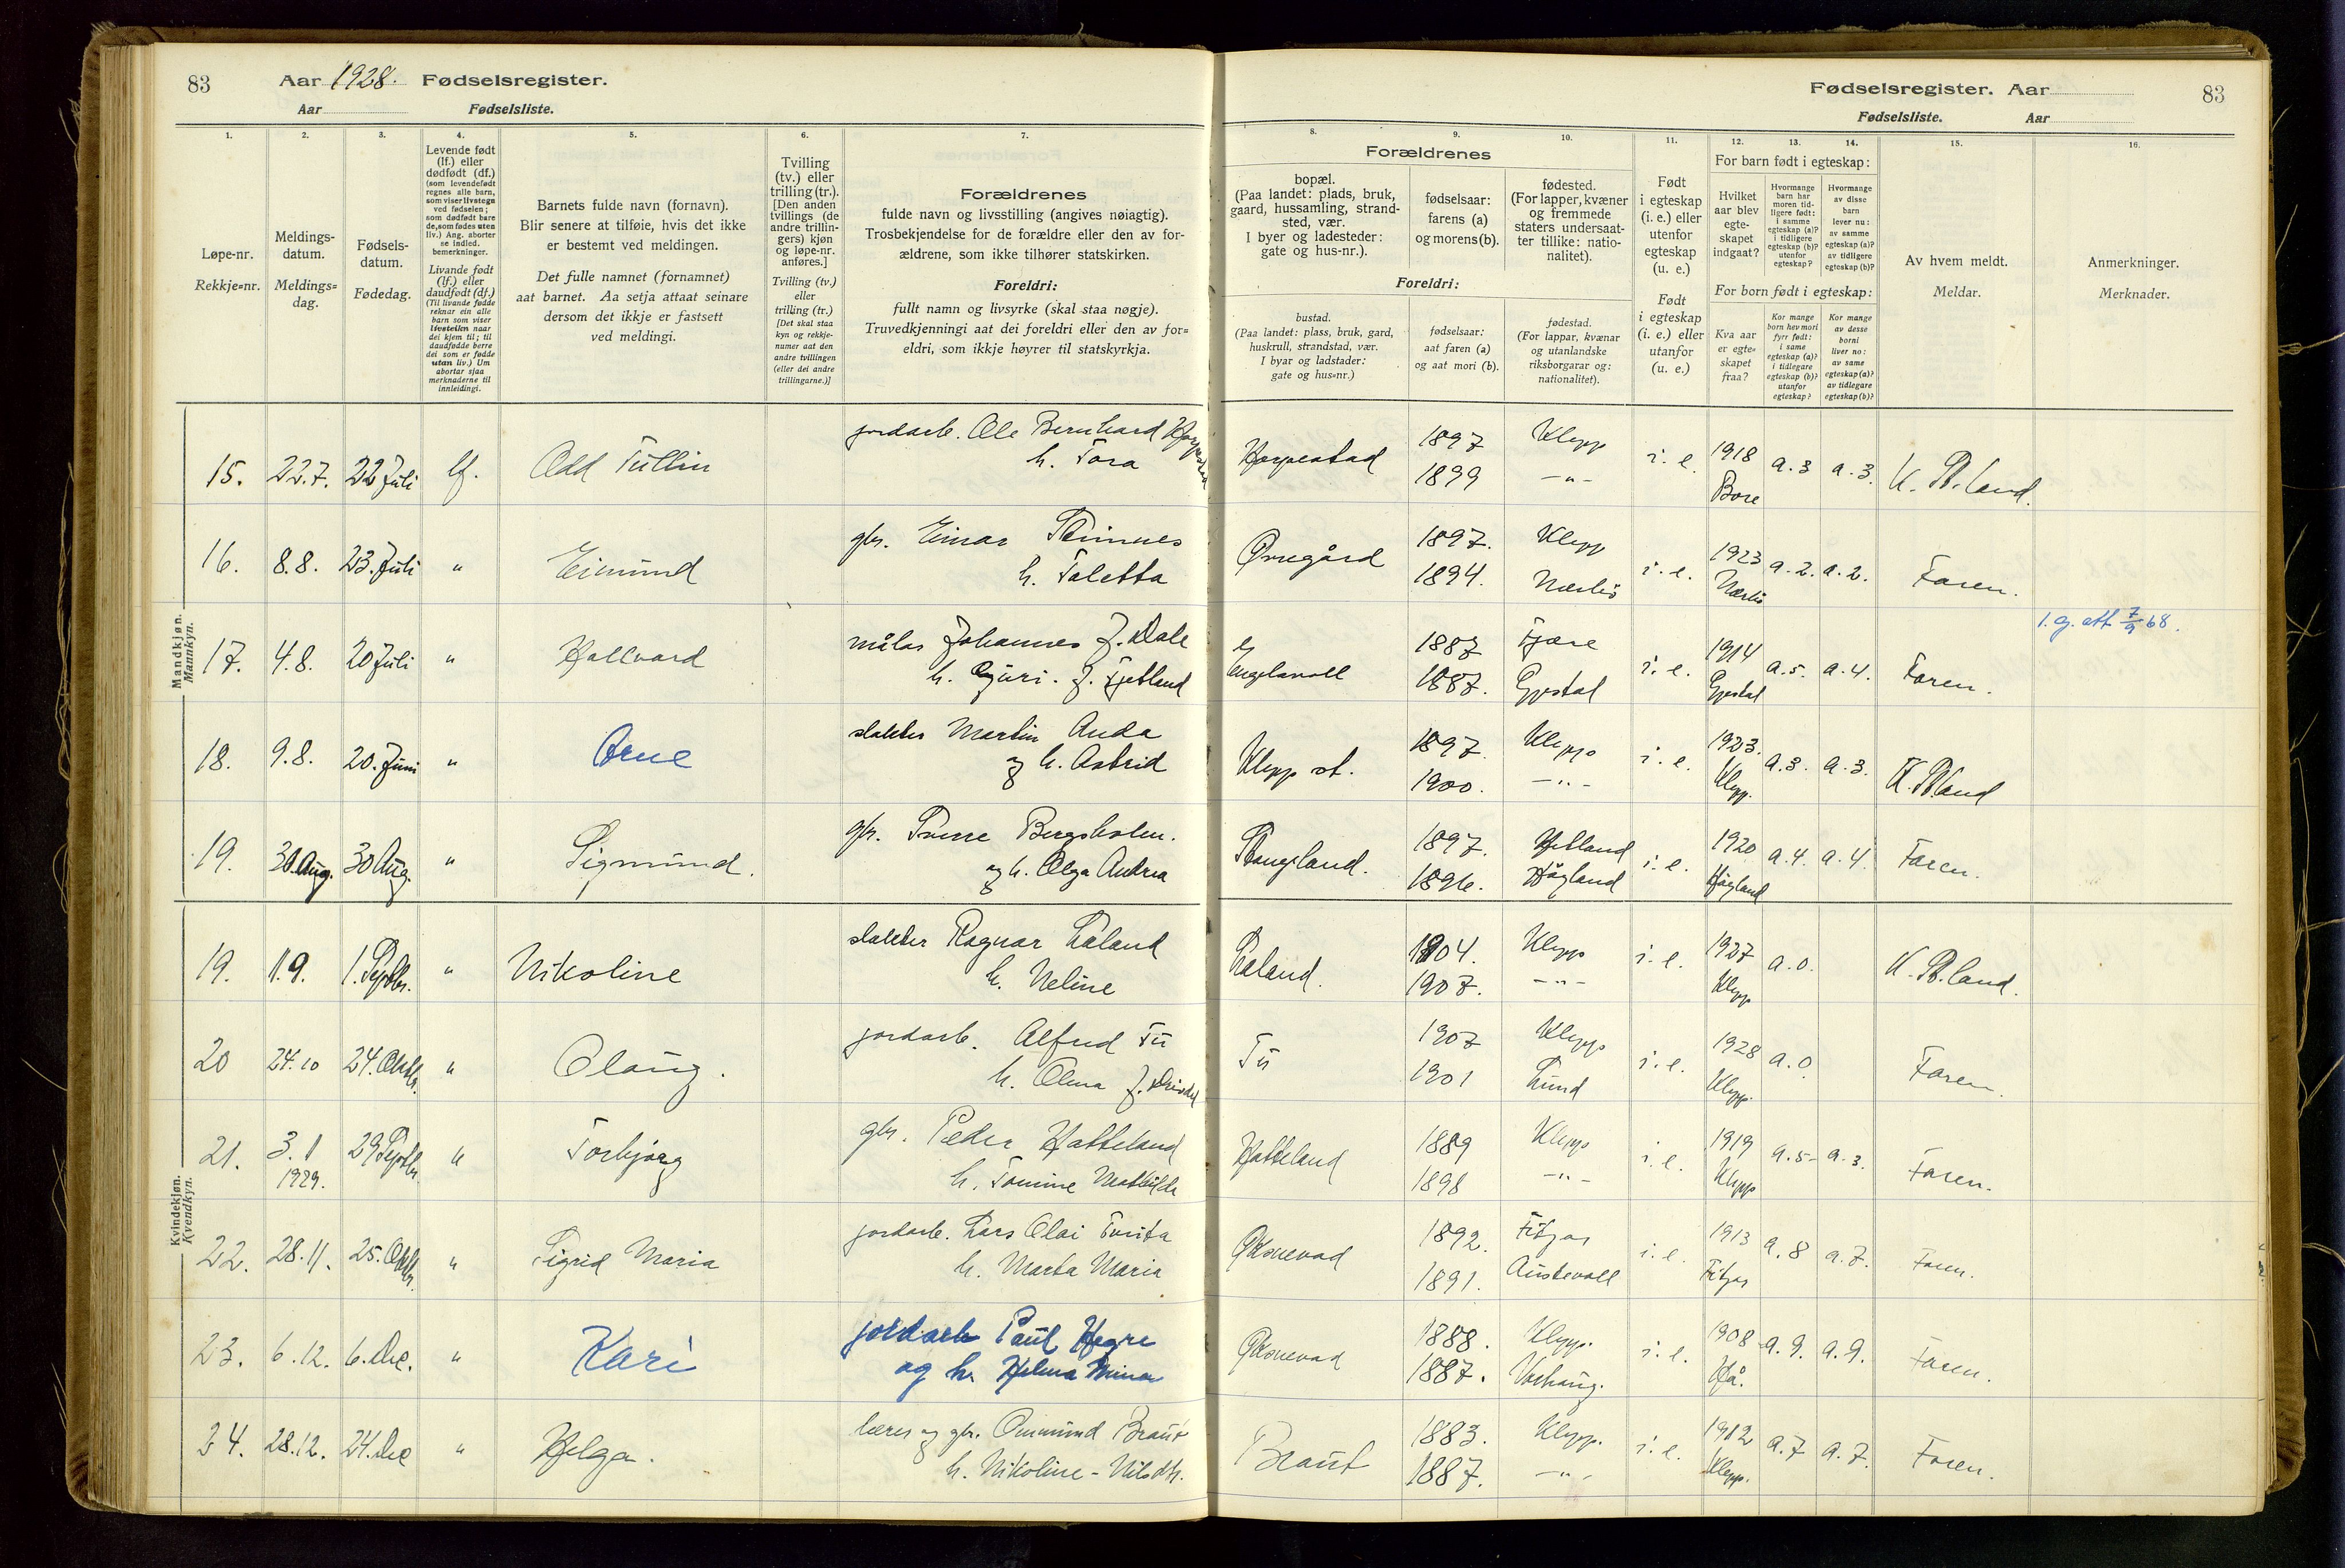 83 Aar 1928. Fødselsregister.
Aar Fødselsliste.
Fødselsregister. Aar 83
Fødselsliste. Aar
1. 2. 3. 4. 5. 6. 7. 8. 9. 10. 11. 12. 13. 14. 15. 16.
Løpe-nr.
Rekkje=nr.
Meldings-
datum.
Meldings=
dag.
Fødsels-
datum.
Fødedag.
Levende født
(lf.) eller
dødfødt (df.)
(som levendefødt
regnes alle barn,
som viser livstegn
ved fødselen;
som dødfødt bare
de, som fødes uten
liv.) Ang. aborter
se indled.
bemerkninger.
Livande født
(lf.) eller
daudfødt (df.)
(Til livande fødde
reknar ein alle
barn som viser
livsteikn naar
dei kjem til; til
daudfødde berre
dei som er fødde
utan liv.) Um
abortar sjaa
merknaderne til
innleidingi.
Barnets fulde navn (fornavn).
Blir senere at tilføie, hvis det ikke
er bestemt ved meldingen.
Det fulle namnet (fornamnet)
aat barnet. Aa setja attaat seinare
dersom det ikkje er fastsett
ved meldingi.
Tvilling
(tv.) eller
trilling (tr.).
[Den anden
tvillings (de
andre trillin-
gers) kjøn
og løpe-nr.
anføres.]
Tvilling (tv.)
eller
trilling (tr.)
[Det skal staa
kyn og rekkje-
numer aat den
andre tvillingen
(eller dei andre
trillingarne.)]
Forældrenes
fulde navn og livsstilling (angives nøiagtig).
Trosbekjendelse for de forældre eller den av for-
ældrene, som ikke tilhører statskirken.
Foreldri:
fullt namn og livsyrke (skal staa nøgje).
Truvedkjenningi aat dei foreldri eller den av for=
eldri, som ikkje høyrer til statskyrkja.
Forældrenes
bopæl.
(Paa landet: plads, bruk,
gaard, hussamling, strand-
sted, vær.
I byer og ladesteder:
gate og hus-nr.).
fødselsaar:
farens (a)
og morens (b).
fødested.
(For lapper, kvæner
og fremmede
staters undersaat-
ter tillike: natio-
nalitet).
Foreldri:
bustad.
(Paa landet: plass, bruk, gard,
huskrull, strandstad, vær.
I byar og ladstader:
gate og hus=nr.)
fødselsaar:
aat faren (a)
og aat mori (b).
fødestad.
(For lappar, kvænar
og utanlandske
riksborgarar og:
nationalitet).
Født
i egteskap
(i. e.) eller
utenfor
egteskap
(u. e.)
Født
i egteskap
(i. e.) eller
utanfor
egteskap
(u. e.)
For barn født i egteskap:
Hvilket
aar blev
egte-
skapet
indgaat?
Hvormange
barn har
moren tid-
ligere født:
i samme
egteskap (a)?
i tidligere
egteskap (b)?
utenfor
egteskap?
Hvormange
av disse
barn
lever nu:
av samme
egteskap (a)?
av tidligere
egteskap (b)?
For born født i egteskap:
Kva aar
er egte=
skapet
fraa?
Kor mange
born hev mori
fyrr født:
i same
egteskap (a)?
i tidlegare
egteskap (b)?
utanfor
egteskap?
Kor mange
av desse
borni
liver no:
av same
egteskap (a)?
av tidlegare
egteskap (b)?
Av hvem meldt.
Meldar.
Anmerkninger.
Merknader.
Mandkjøn.
Mannkyn.
15. 22.7. 22 Juli lf. Odd Tullin jordarb. Ole Bernhard Horpestad
h. Tora
Horpestad 1897 Klepp i. e. 1918 a. 3 a. 3.
1899 —"— Bore
16. 8.8. 23. Juli " Eimund gbr. Einar Steinnes
h. Taletta
Ørnegård 1897. Klepp i. e. 1923 a. 2. a. 2. Faren.
1894. Nærbø Nærbø
17. 4.8. 20 Juli " Hallvard målar Johannes J. Dale
h. Guri. J. Tjetland
Engelsvoll 1887 Fjære i. e. 1914 a. 5. a. 4. Faren.
1887. Gjestal Gjestal
1. g. att 7/9 68.
18. 9.8. 20. Juni " Arne slakter Martin Anda
og h. Astrid
Klepp st. 1897. Klepp i. e. 1923. a. 3. a. 3.
1900. —"— Klepp.
19. 30. Aug. 30 Aug. " Sigmund. gbr. Sverre Bergsholm.
og h. Olga Andrea
Stangeland. 1897. Hetland i. e. 1920 a. 4. a. 4. Faren.
1896. Høgland Høgland
Kvindekjøn.
Kvendkyn.
19. 1.9. 1. Septbr. " Nikoline slakter Ragnar Laland
h. Neline
Laland. 1904. Klepp i. e. 1927 a. 0.
1907. —"— Klepp
20 24.10 24. Oktbr. " Olaug. jordarb. Alfred Tu
h. Olena
Tu 1907 Klepp i. e. 1928 a. 0. Faren.
1901 Lund Klepp.
21. 3. 1 29 Septbr. " Torbjørg gbr. Peder Hatteland
1929. h. Tomine Mathilde
Hatteland 1889 Klepp i. e. 1919 a. 5- a. 3. Faren.
1898 —"— Klepp
22. 28.11. 25. Oktbr. " Sigrid Maria jordarb. Lars Olai Tveita
h. Marta Maria
Øksnevad 1892. Fitjar i. e. 1913 a. 8 a. 7. Faren.
1891. Austevoll Fitjar
23. 6.12. 6. Dec. " Kari jordarb Paul Hegre
og h. Helma Mina
Øksnevad 1888. Klepp. i. e. 1908 a. 9. a. 9. Faren.
1887. Varhaug. Hå.
24. 28.12. 24. Dec " Helga. lærer og gbr. Ommund Braut
h. Nikoline - Nilsdtr.
Braut 1883. Klepp. i. e. 1912 a. 7 a. 7. Faren.
1887. —"— Klepp.